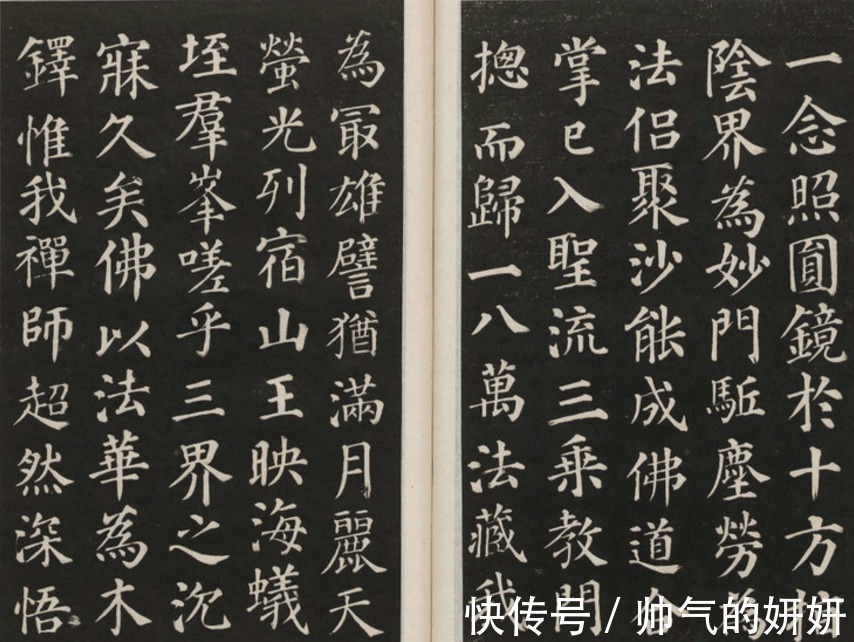 一念照圓鏡於十方指
陰界為妙門駈塵勞為
法侶聚沙能成佛道合
掌已入聖流三乘教門
摠而歸一八萬法藏我
為冣雄譬猶滿月麗天
螢光列宿山王映海蟻
垤羣峯嗟乎三界之沉
寐久矣佛以法華為木
鐸惟我禪師超然深悟
快传号 / 帅气的妍妍